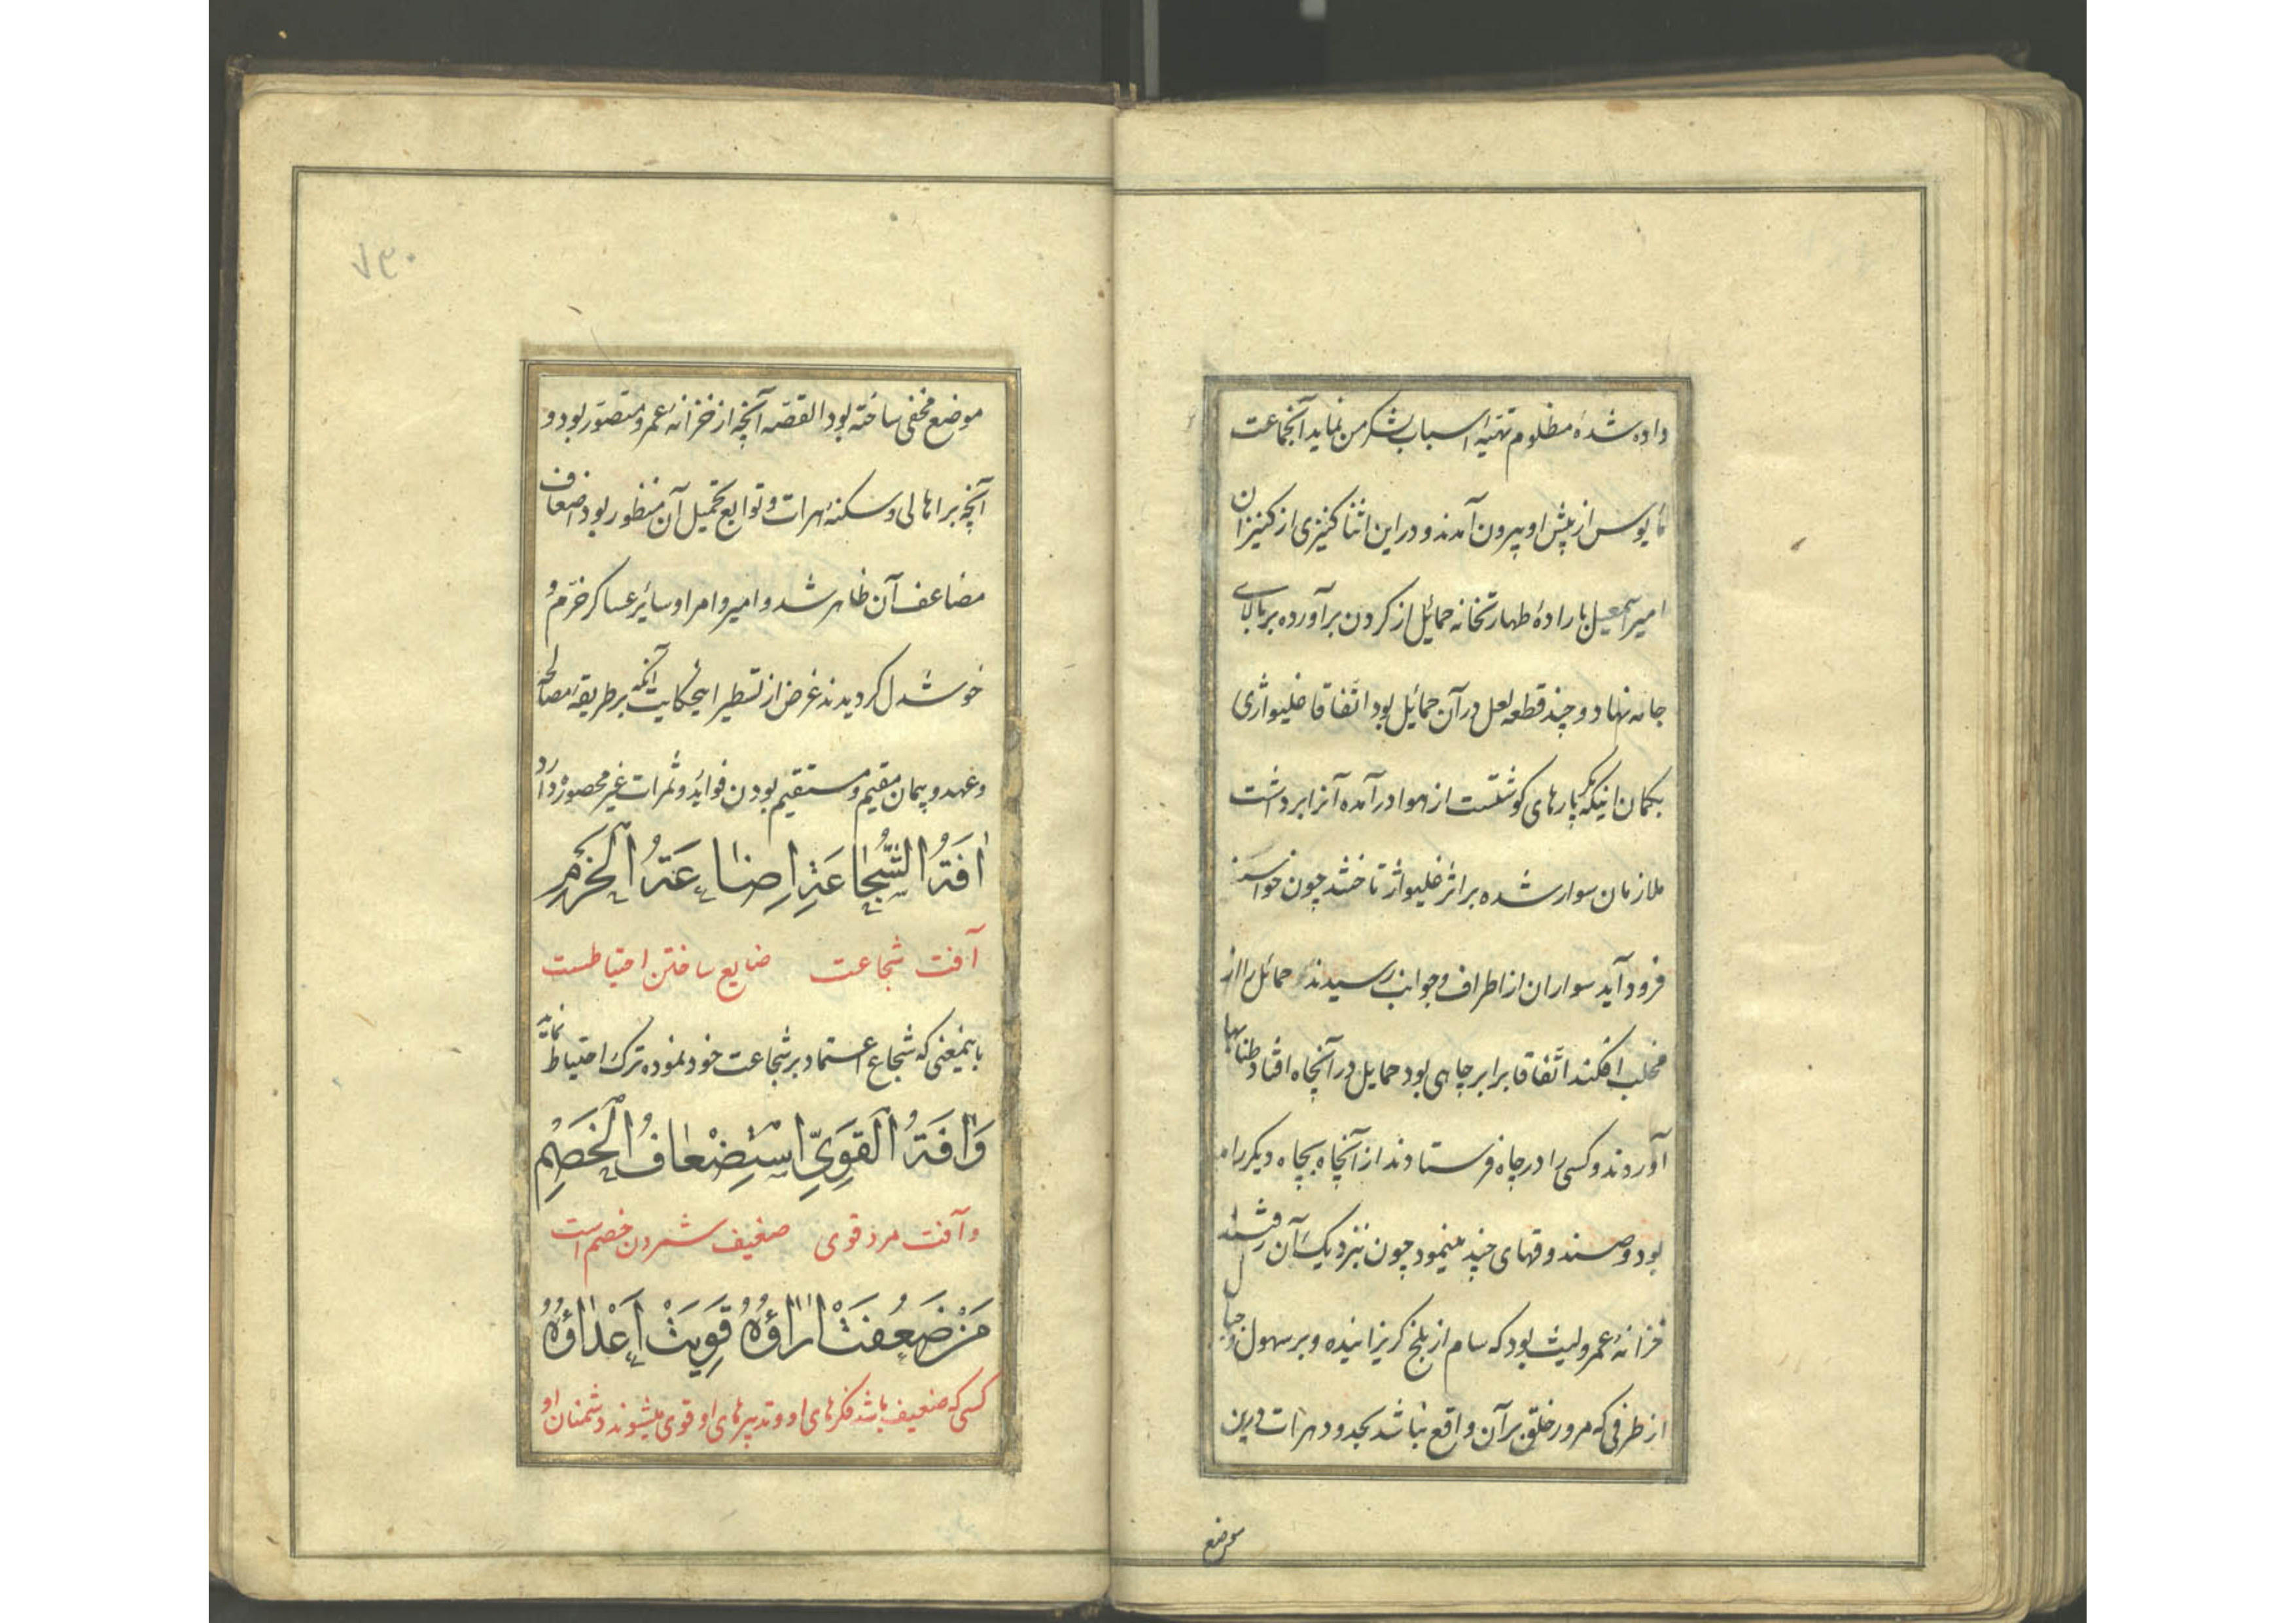 داده شدهٔ مظلوم تهیهٔ اسباب لشکر من نماید آنجماعت
مایوس از پیش او بیرون آمدند و در این اثنا کنیزی از کنیزان
امیر اسمعیل باراده طهارتخانه حمائل از کردن برآورده بر بالای
جامه نهاد و چند قطعه لعل در آن حمائل بود اتفاقا خلیواژی
بکمان اینکه پارهای کوشتست از هوا در آمده آنرا برداشت
ملازمان سوار شده بر اثر خلیواژ تاختند چون خواست
فرود آید سواران از اطراف و جوانب رسیدند حمائل را از
مخلب افکند اتفاقا برابر چاهی بود حمایل در آنچاه افتاد طنابها
آوردند و کسی را در چاه فرستادند از آنچاه بچاه دیکر راه
بود و صندوقهای چند مینمود چون بنزدیک آن رفتند
خزانهٔ عمرو لیث بود که سام از بلخ کریزانیده و بر سهول و جبال
از طرفی که مرور خلق بر آن واقع نباشد بحدود هرات درین
موضع
۷۳۰
موضع مخفی ساخته بود القصه آنچه از خزانهٔ عمرو متصور بود و
آنچه بر اهالی و سکنهٔ هرات و توابع تحمیل آن منظور بود اضعاف
مضاعف آن ظاهر شد و امیر و امرا و سائر عساکر خرم و
خوشدل کردیدند غرض از تسطیر اینحکایت آنکه بر طریقه مصالحه
و عهد و پیمان مقیم و مستقیم بودن فوائد و ثمرات غیر محصور دارد
اٰفَةُ الشُّجٰاعَةِ اِضٰاعَةُ الْحَزْمِ
آفت شجاعت ضایع ساختن احتیاطست
باینمعنی که شجاع اعتماد بر شجاعت خود نموده ترک احتیاط نماید
وَاٰفَةُ الْقَوِيِّ اسْتِضْعٰافُ الْخَصْمِ
و آفت مرد قوی ضعیف شمردن خصم است
مَنْ ضَعُفَتْ اٰرٰاؤُهُ قَوِيَتْ اَعْدٰاؤُهُ
کسی که ضعیف باشد فکرهای او و تدبیرهای او قوی میشوند دشمنان او